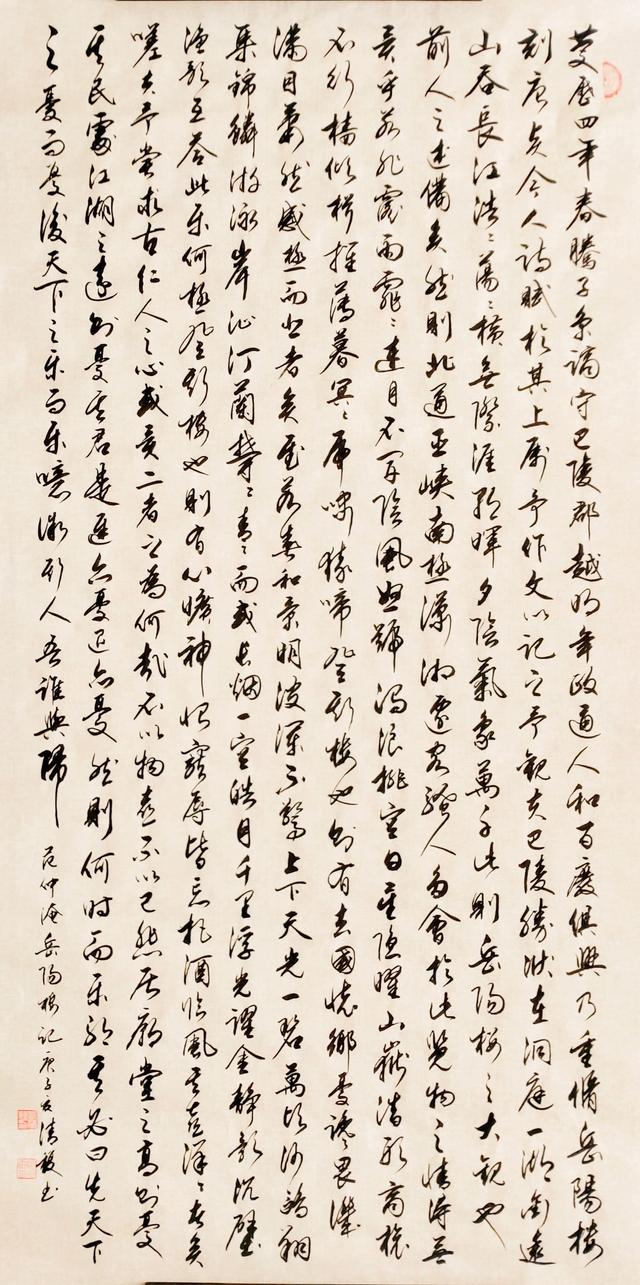 慶歷四年春騰子京謫守巴陵郡越明年政通人和百廢俱興乃重脩岳陽樓
刻唐賢今人詩賦於其上屬予作文以記之予觀夫巴陵勝狀在洞庭一湖銜遠
山吞長江浩々蕩々橫無際涯朝暉夕陰氣象萬千此則岳陽樓之大觀也
前人之述備矣然則北通巫峽南極瀟湘遷客騷人多會於此覽物之情得無
異乎若夫霪雨霏々連月不開陰風怒號濁浪排空日星隱曜山嶽潛形商旅
不行檣傾楫摧薄暮冥々虎嘯猿啼登斯樓也則有去國懷鄉憂讒畏譏
滿目蕭然感極而悲者矣至若春和景明波瀾不驚上下天光一碧萬頃沙鷗翔
集錦鱗游泳岸芷汀蘭鬱々青々而或長烟一空皓月千里浮光躍金靜影沉璧
漁歌互答此樂何極登斯樓也則有心曠神怡寵辱皆忘把酒臨風其喜洋々者矣
嗟夫予嘗求古仁人之心或異二者之為何哉不以物喜不以己悲居廟堂之高則憂
其民處江湖之遠則憂其君是進亦憂退亦憂然則何時而樂耶其必曰先天下
之憂而憂後天下之樂而樂噫微斯人吾誰與歸
范仲淹岳陽樓記庚子夏清書